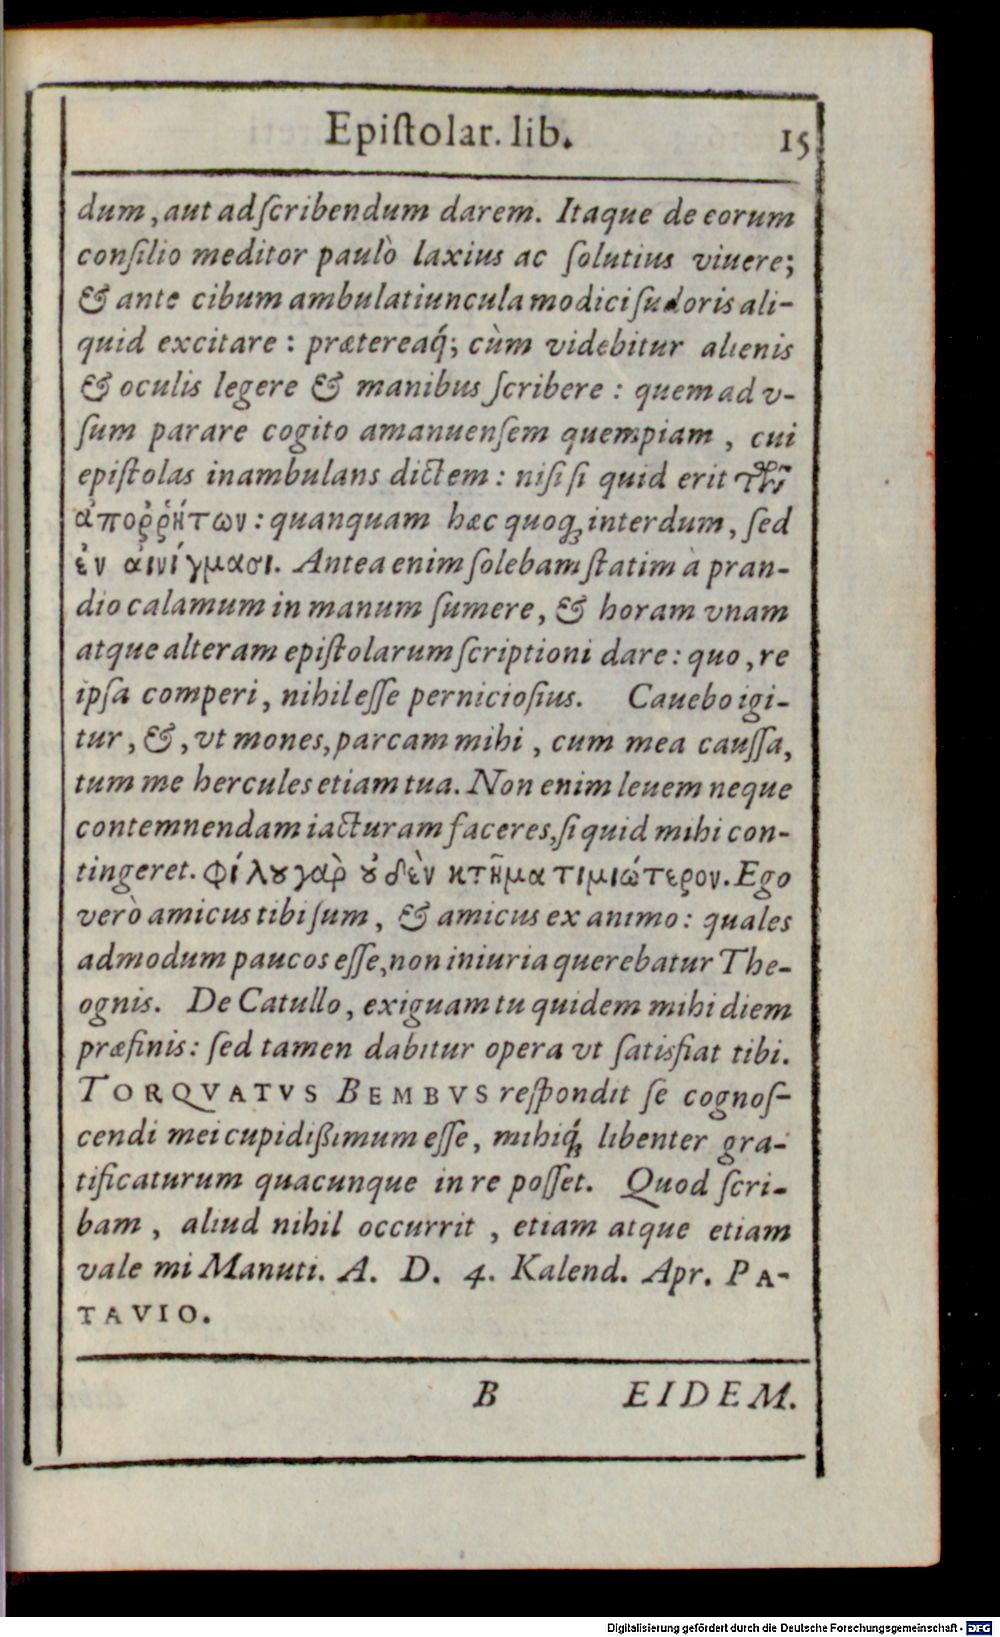 Epiſtolar. lib. 15
dum, aut adſcribendum darem. Itaque de eorum
conſilio meditor paulò laxius ac ſolutius viuere;
& ante cibum ambulatiuncula modici ſudoris ali-
quid excitare: prætereaq́; cùm videbitur alienis
& oculis legere & manibus ſcribere: quem ad v-
ſum parare cogito amanuenſem quempiam, cui
epiſtolas inambulans dictem: niſi ſi quid erit τῶν
ἀποῤῥήτων: quanquam hæc quoq; interdum, ſed
ἐν αἰνίγμασι. Antea enim ſolebam ſtatim à pran-
dio calamum in manum ſumere, & horam vnam
atque alteram epiſtolarum ſcriptioni dare: quo, re
ipſa comperi, nihil eſſe pernicioſius. Cauebo igi-
tur, &, vt mones, parcam mihi, cum mea cauſſa,
tum me hercules etiam tua. Non enim leuem neque
contemnendam iacturam faceres, ſi quid mihi con-
tingeret. Φίλου γὰρ οὐδὲν κτῆμα τιμιώτερον. Ego
verò amicus tibi ſum, & amicus ex animo: quales
admodum paucos eſſe, non iniuria querebatur The-
ognis. De Catullo, exiguam tu quidem mihi diem
præfinis: ſed tamen dabitur opera vt ſatisfiat tibi.
TORQVATVS BEMBVS reſpondit ſe cognoſ-
cendi mei cupidißimum eſſe, mihiq́; libenter gra-
tificaturum quacunque in re poſſet. Quod ſcri-
bam, aliud nihil occurrit, etiam atque etiam
vale mi Manuti. A. D. 4. Kalend. Apr. PA-
TAVIO.
B EIDEM.
Digitalisierung gefördert durch die Deutsche Forschungsgemeinschaft - DFG